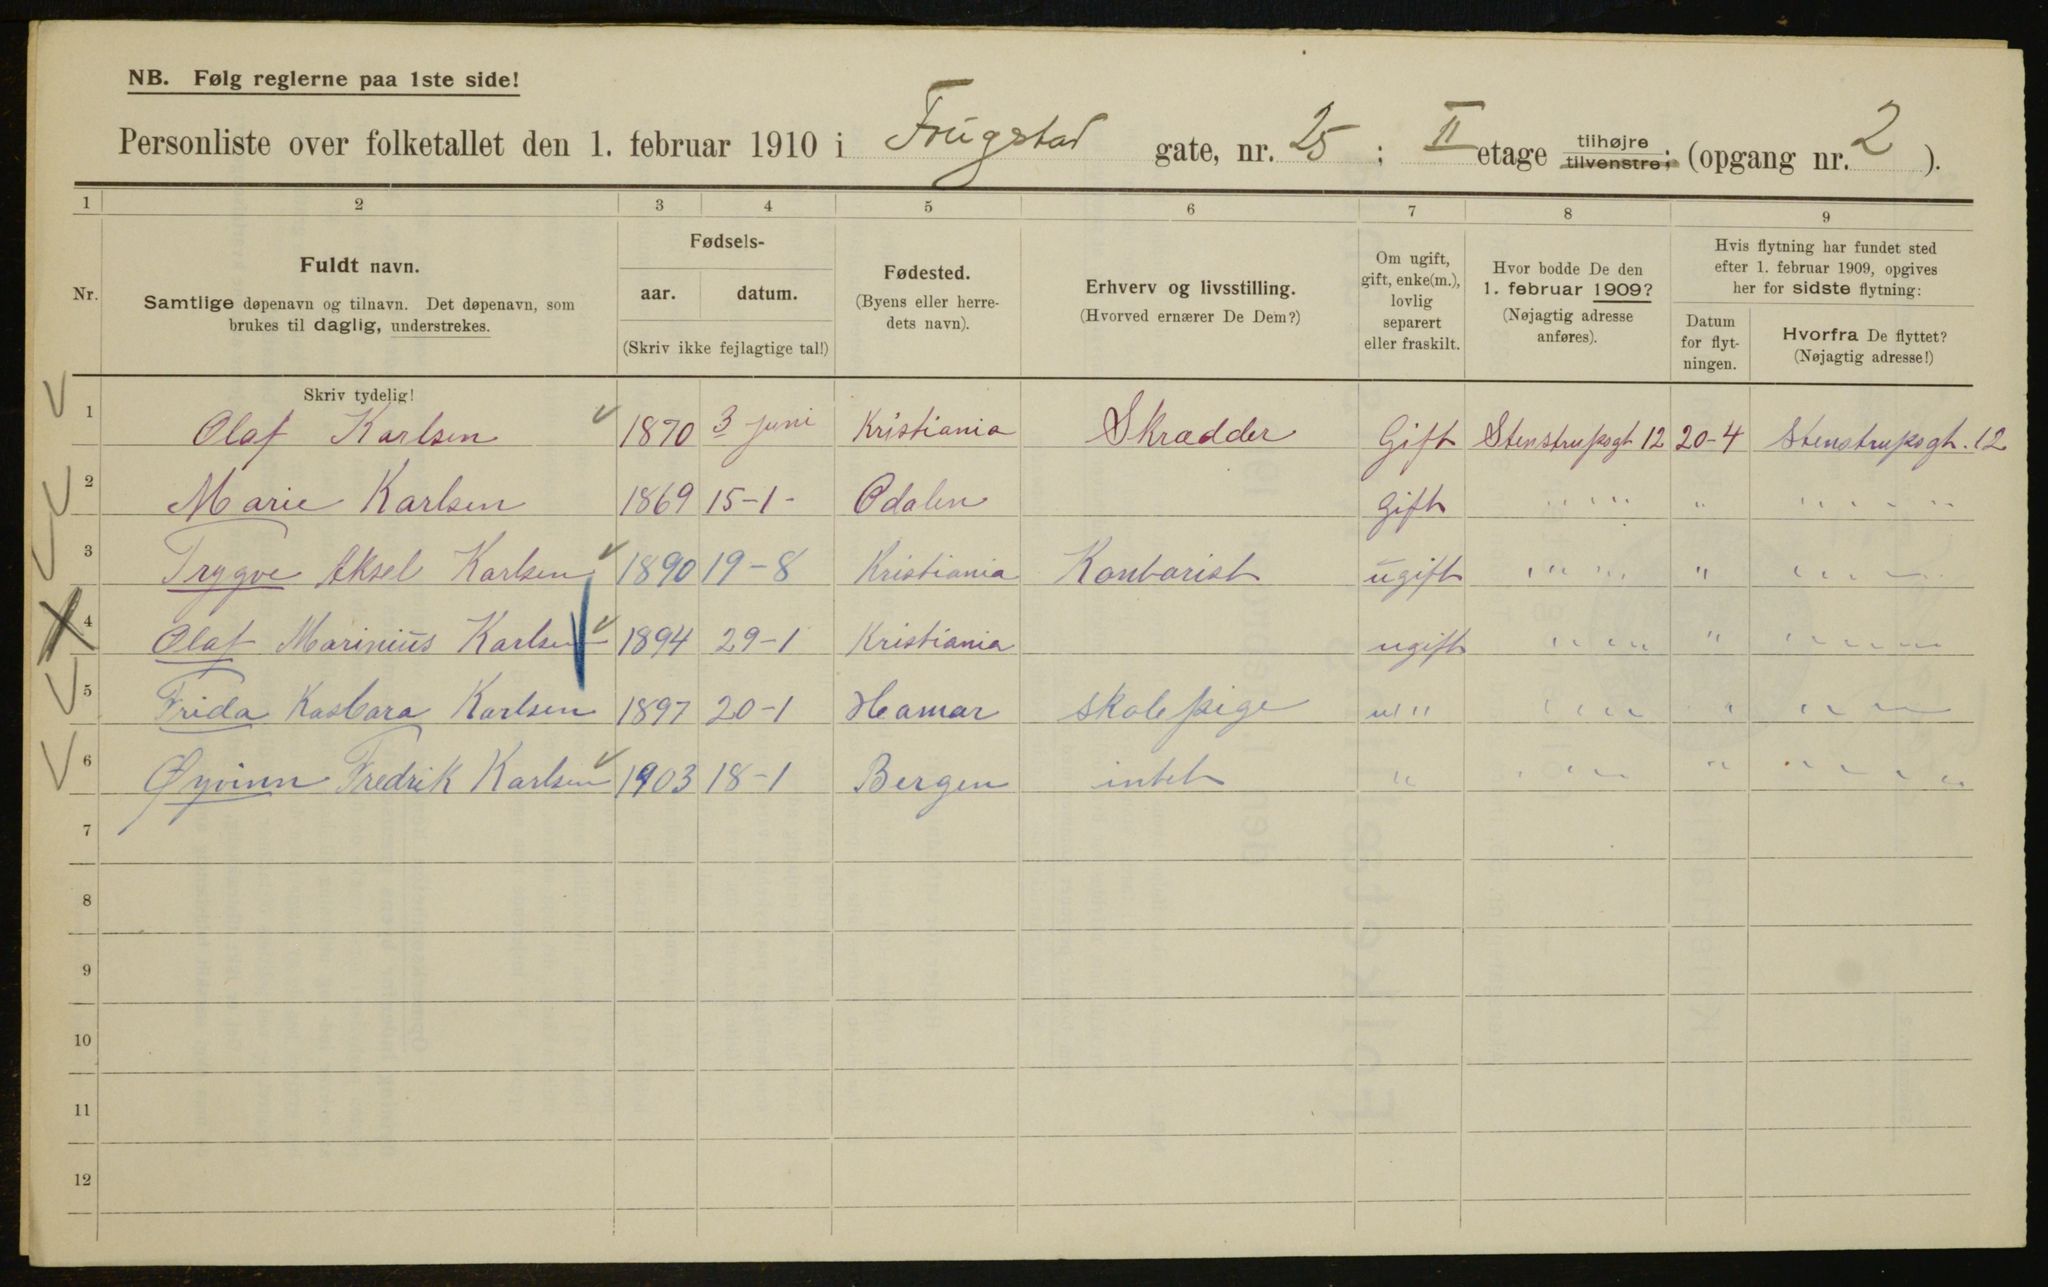 NB. Følg reglerne paa 1ste side!
Personliste over folketallet den 1. februar 1910 i Frugstad gate, nr. 25 ; II etage tilhøjre tilvenstre; (opgang nr. 2 ).
1 2 3 4 5 6 7 8 9
Nr.
Fuldt navn.
Samtlige døpenavn og tilnavn. Det døpenavn, som
brukes til daglig, understrekes.
Skriv tydelig!
Fødsels-
aar. datum.
(Skriv ikke fejlagtige tal!)
Fødested.
(Byens eller herre-
dets navn).
Erhverv og livsstilling.
(Hvorved ernærer De Dem?)
Om ugift,
gift, enke(m.),
lovlig
separert
eller fraskilt.
Hvor bodde De den
1. februar 1909?
(Nøjagtig adresse
anføres).
Hvis flytning har fundet sted
efter 1. februar 1909, opgives
her for sidste flytning:
Datum
for flyt-
ningen.
Hvorfra De flyttet?
(Nøjagtig adresse!)
1 Olaf Karlsen 1870 3 juni Kristiania Skrædder Gift Stenstrupsgt 12 20-4 Stenstrupsgt. 12
2 Marie Karlsen 1869 15-1- Odalen Gift " " " " " " " " " "
3 Trygve Aksel Karlsen 1890 19-8 Kristiania Kontorist ugift " " " " " " " " "
4 Olaf Marinius Karlsen 1894 29-1 Kristiania ugift " " " " " " " " "
5 Frida Karlsen 1897 20-1 Hamar skolepige u " " " " " " " " " "
6 Øyvinn Fredrik Karlsen 1903 18-1 Bergen intet " " " " " " " " " " "
7
8
9
10
11
12